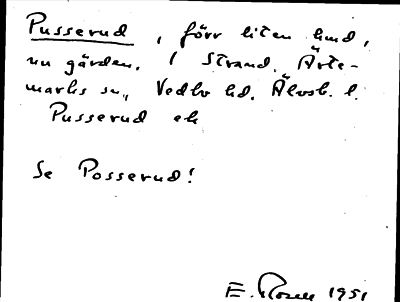 Pusserud, förr liten hmd,
nu gärden. 1 Strand. Ärte-
marks sn,, Vedbo hd. Älvsb. l.
Pusserud ek
Se Posserud!
E. Rosell 1951